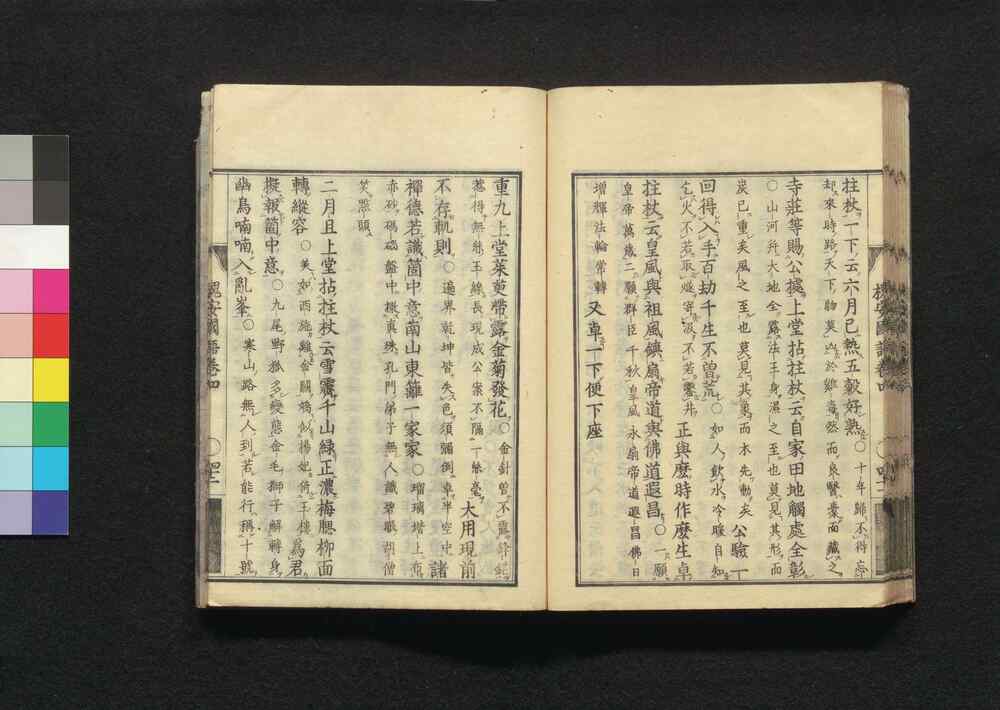 拄杖一下云六月已熱五穀好熟〇十年歸不得忘
却來時路天下物莫凶於雞毒然而良醫橐而藏之
寺莊等賜公據上堂拈拄杖云自家田地觸處全彰
〇山河幷大地全露法王身濕之至也莫見其形而
炭已重矣風之至也莫見其象而木先動矣公驗一
回得入手百劫千生不曾荒〇如人飲水冷暖自知
乞火不若取燧寄汲不若鑿井正與麼時作麼生卓
拄杖云皇風與祖風鎮扇帝道與佛道遐昌〇一願
皇帝萬歲二願群臣千秋皇風永扇帝道遐昌佛日
增輝法輪常轉又卓一下便下座
槐安國語卷四
重九上堂茱萸帶露金菊發花〇金針曾不露鋒鋩
惹得無絲玉線長現成公案不隔一絲毫大用現前
不存軌則〇遍界乾坤皆失色須彌倒卓半空中諸
禪德若識箇中意南山東籬一家家〇瑠璃堦上布
赤砂碼碯盤中撒眞珠孔門弟子無人識碧眼胡僧
笑點頭
二月旦上堂拈拄杖云雪霽千山綠正濃梅腮柳面
轉縱容〇美如西施離金闕嬌似楊妃倚玉樓爲君
擬報箇中意〇九尾野狐多變態金毛獅子解轉身
幽鳥喃喃入亂峯〇寒山路無人到若能行稱十號
槐安國語卷四